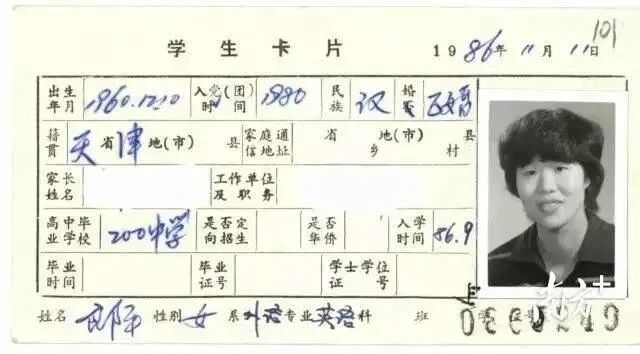 101
学生卡片 1986年11月11日
出生年月 1960.12.10 入党(团)时间 1980 民族 汉 婚否 已婚
籍贯 天省津地(市) 县 家庭通信地址 省 地(市) 县 乡 村
家长姓名 工作单位及职务
高中毕业学校 200中学 是否定向招生 是否华侨 入学时间 86.9
毕业时间 毕业证号 学士学位证号
姓名 郎平 性别 女 系 外语 专业 英语 科 班 学 证号
南方+